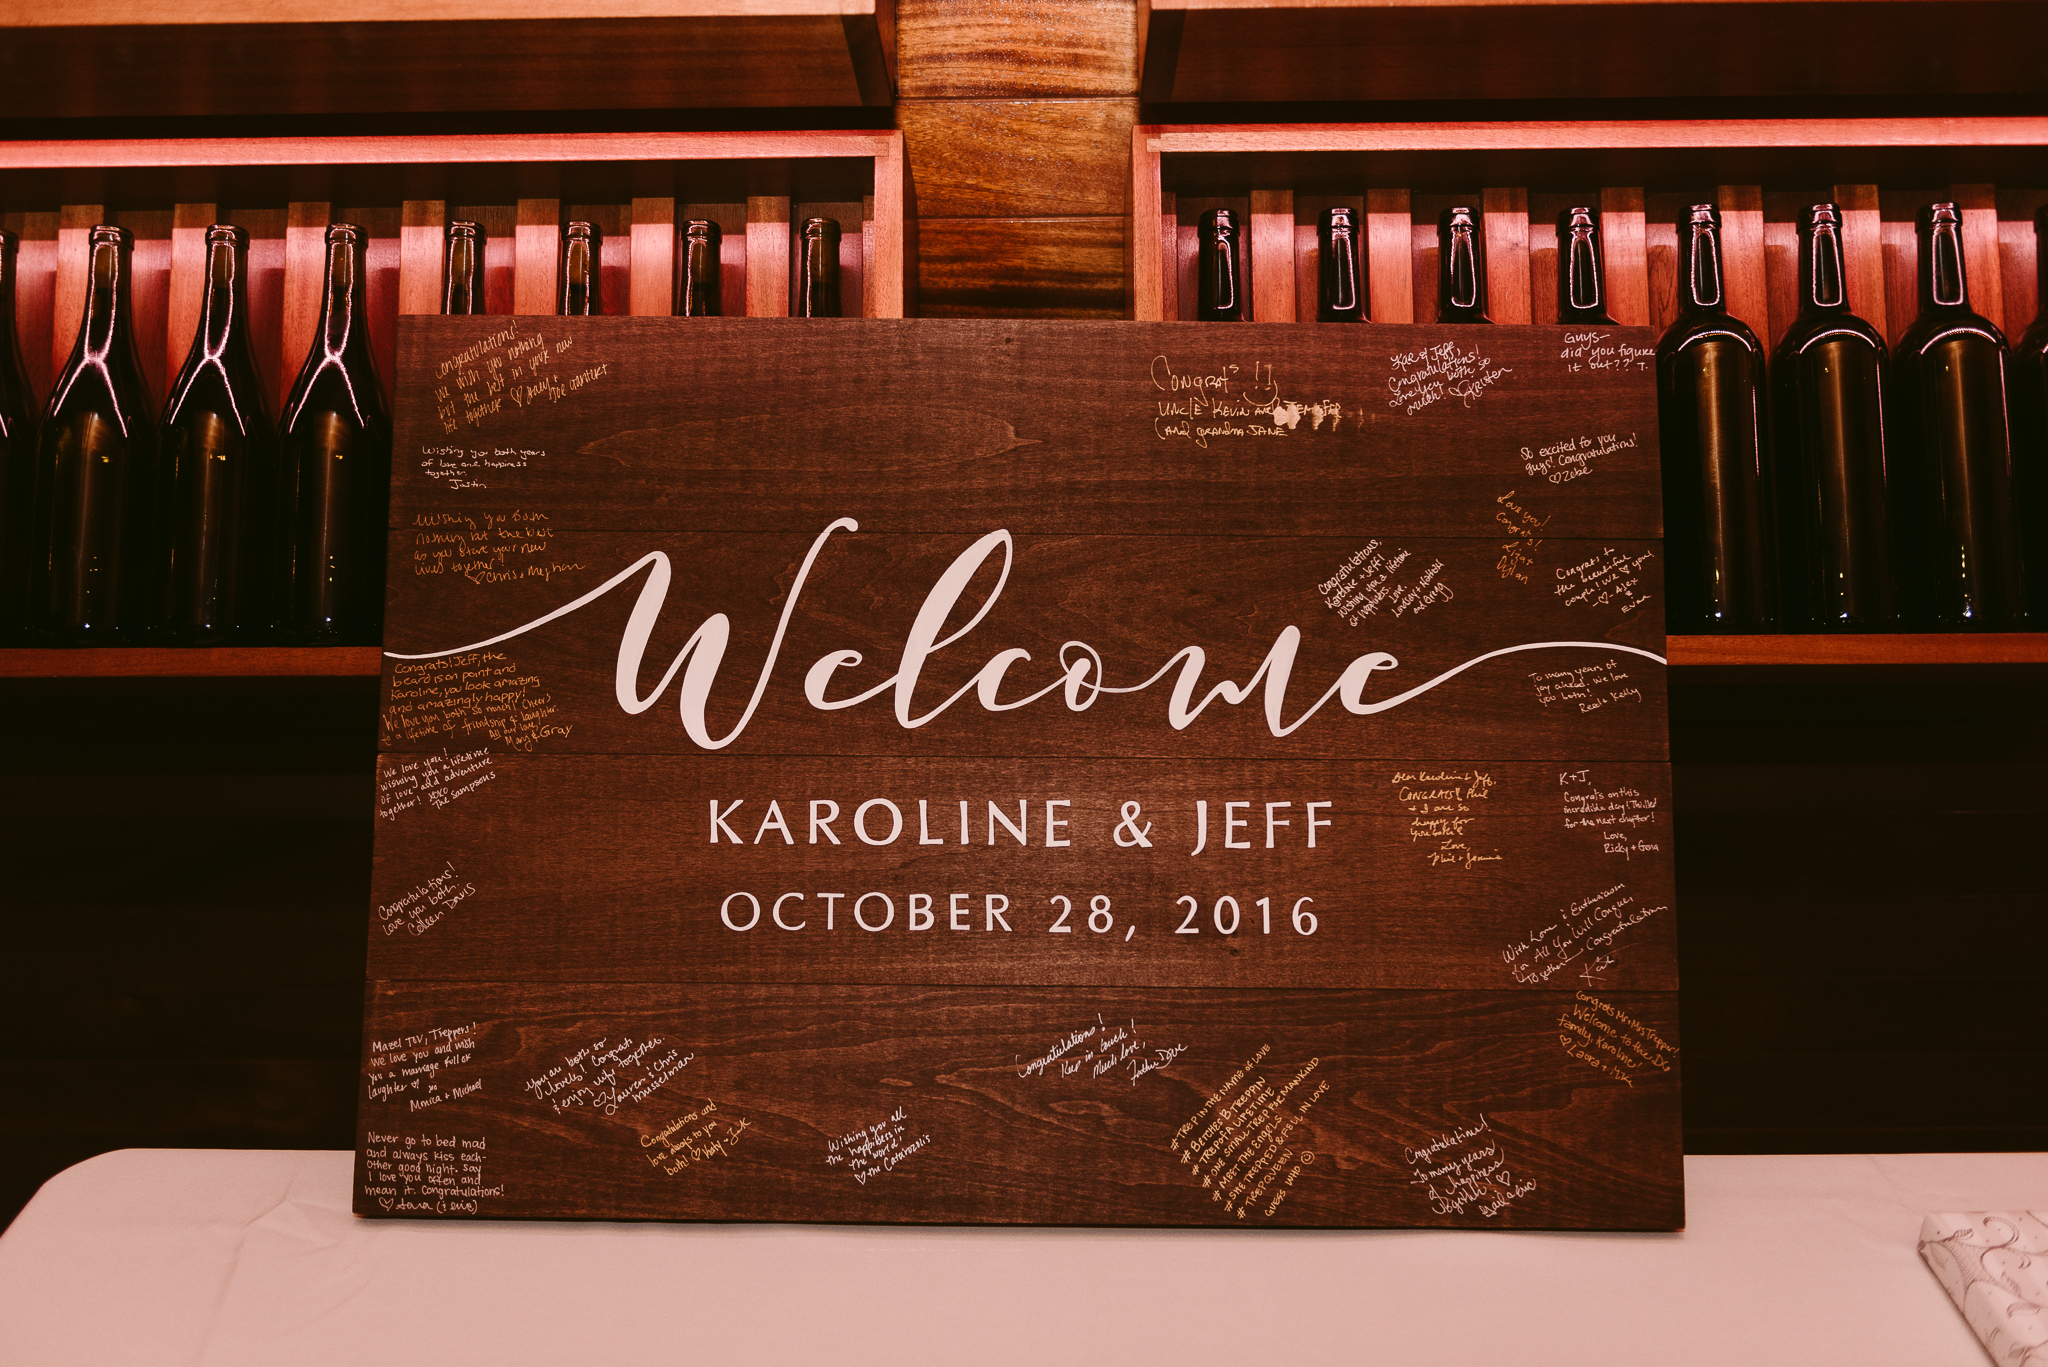 Congratulations!
We wish you nothing
but the best in your new
life together ♡
Wishing you both years
of love and happiness
together.
Justin
Wishing you both
nothing but the best
as you start your new
lives together!
♡ Chris + Meghan
Congrats! Jeff, the
beard is on point and
Karoline, you look amazing
and amazingly happy!
We love you both so much! Cheers
to a lifetime of friendship & laughter.
All our love,
Mary & Gray
We love you!
Wishing you a lifetime
of love and adventure
together! XOXO
The Sampsons
Congratulations!
Love you both.
Colleen Davis
Mazel Tov, Treppers!
We love you and wish
you a marriage full of
laughter ♡ xo
Monica + Michael
Never go to bed mad
and always kiss each-
other good night. Say
I love you often and
mean it. Congratulations!
♡ Sara (& eric)
Welcome
KAROLINE & JEFF
OCTOBER 28, 2016
You are both so
loved! Congrats
& enjoy wifey together.
♡ Lauren & Chris
Musselman
Congratulations and
love always to you
both! ♡
Wishing you all
the happiness in
the world!
♡ the
Congratulations!
Keep in touch!
Much love,
Father Dave
# TREP IN THE NAME OF LOVE
# BETCHES B TREPPIN
# TREPOTA LIFETIME
# ONE SMALL TREP FOR MANKIND
# MEET THE ENGELS
# SHE TREPPED & FELL IN LOVE
# TREP QUEEN
GUESS WHO ☺
Congratulations!
To many years
of happiness
together! ♡
Congrats!
UNCLE KEVIN AND
(and GRANDMA JANE
Kar & Jeff,
Congratulations!
Love you both so
much! ♡ Kristen
Guys—
did you figure
it out?? T.
So excited for you
guys! Congratulations!
♡ Zobe
Love you!
Congrats!
Dylan
Congratulations,
Karoline + Jeff!
Wishing you a lifetime
of happiness. Love,
and Gregg
Congrats to
the beautiful
couple! We love you!
-♡- Alex
+
Evan
To many years of
joy ahead. We love
you both!
Kelly
Dear Karoline + Jeff,
CONGRATS! Phil
+ I are so
happy for
you
Love,
Phil +
K+J,
Congrats on this
incredible day! Thrilled
for the next chapter!
Love,
Ricky + Gena
With Love & Enthusiasm
for All You Will Conquer
Together — Congratulations
Congrats Mr + Mrs Trepper!
Welcome to the DG
family, Karoline!
♡ Laura + Mike